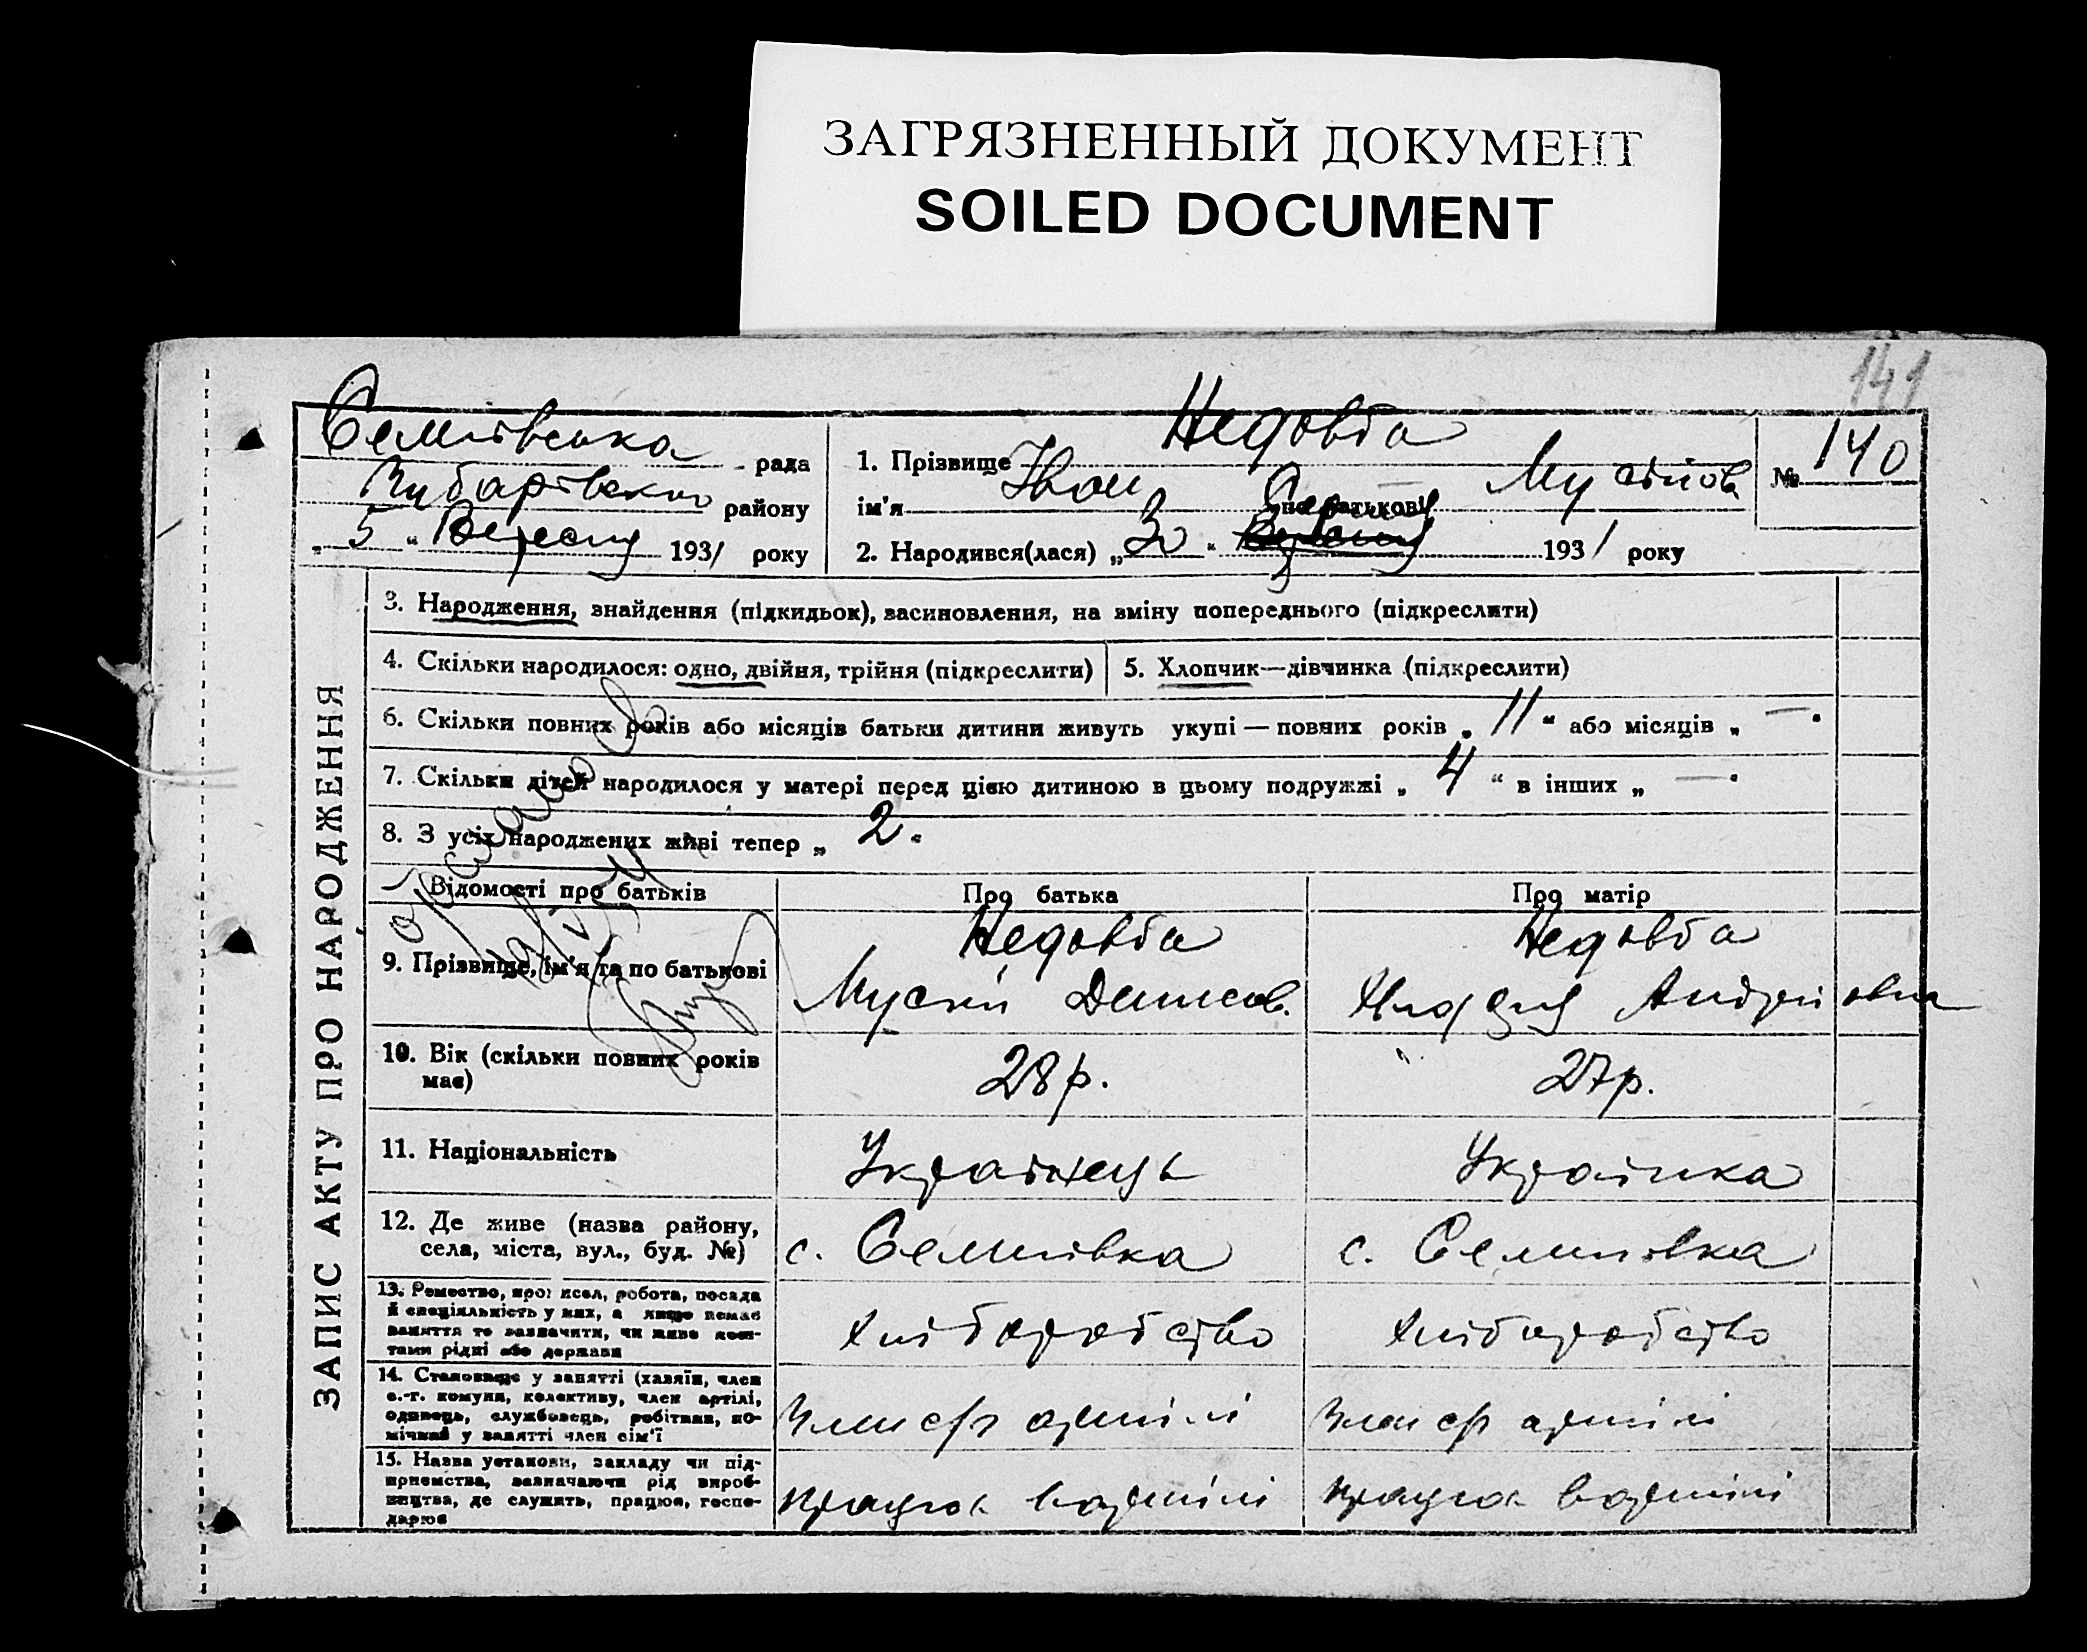 ЗАГРЯЗНЕННЫЙ ДОКУМЕНТ
SOILED DOCUMENT
141
Семнівська рада
району
„ 5 “ Вересня 1931 року
1. Прізвище Недовба
ім'я Іван по батькові Мусіїов
2. Народився(лася) „ 30 “ Серпня 1931 року
№ 140
ЗАПИС АКТУ ПРО НАРОДЖЕННЯ
3. Народження, знайдення (підкидьок), засиновлення, на зміну попереднього (підкреслити)
4. Скільки народилося: одно, двійня, трійня (підкреслити)
5. Хлопчик—дівчинка (підкреслити)
6. Скільки повних років або місяців батьки дитини живуть укупі — повних років „ 11 “ або місяців „ — “
7. Скільки дітей народилося у матері перед цією дитиною в цьому подружжі „ 4 “ в інших „ — “
8. З усіх народжених живі тепер „ 2 “
Відомості про батьків
Про батька
Про матір
9. Прізвище, ім'я та по батькові
Недовба
Мусій Денисов.
Недовба
Андрійовна
10. Вік (скільки повних років
має)
28 р.
27 р.
11. Національність
Українець
Українка
12. Де живе (назва району,
села, міста, вул., буд. №)
с. Семнівка
с. Семнівка
13. Ремество, професія, робота, посада
й спеціяльність у них, а якщо немає
заняття то зазначити, чи живе кош-
тами рідні або держави
хліборобство
хліборобство
14. Становище у занятті (хазяїн, член
с.-г. комуни, колективу, член артілі,
одинець, службовець, робітник, по-
мічний у занятті член сім'ї
Член с/г артілі
Член с/г артілі
15. Назва установи, закладу чи під-
приємства, зазначаючи рід вироб-
ництва, де служить, працює, госпо-
дарює
працює в артілі
працює в артілі